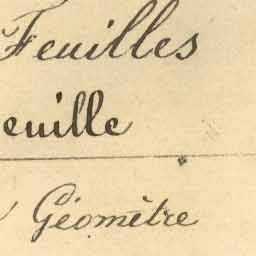 Feuilles
euille
Géomètre